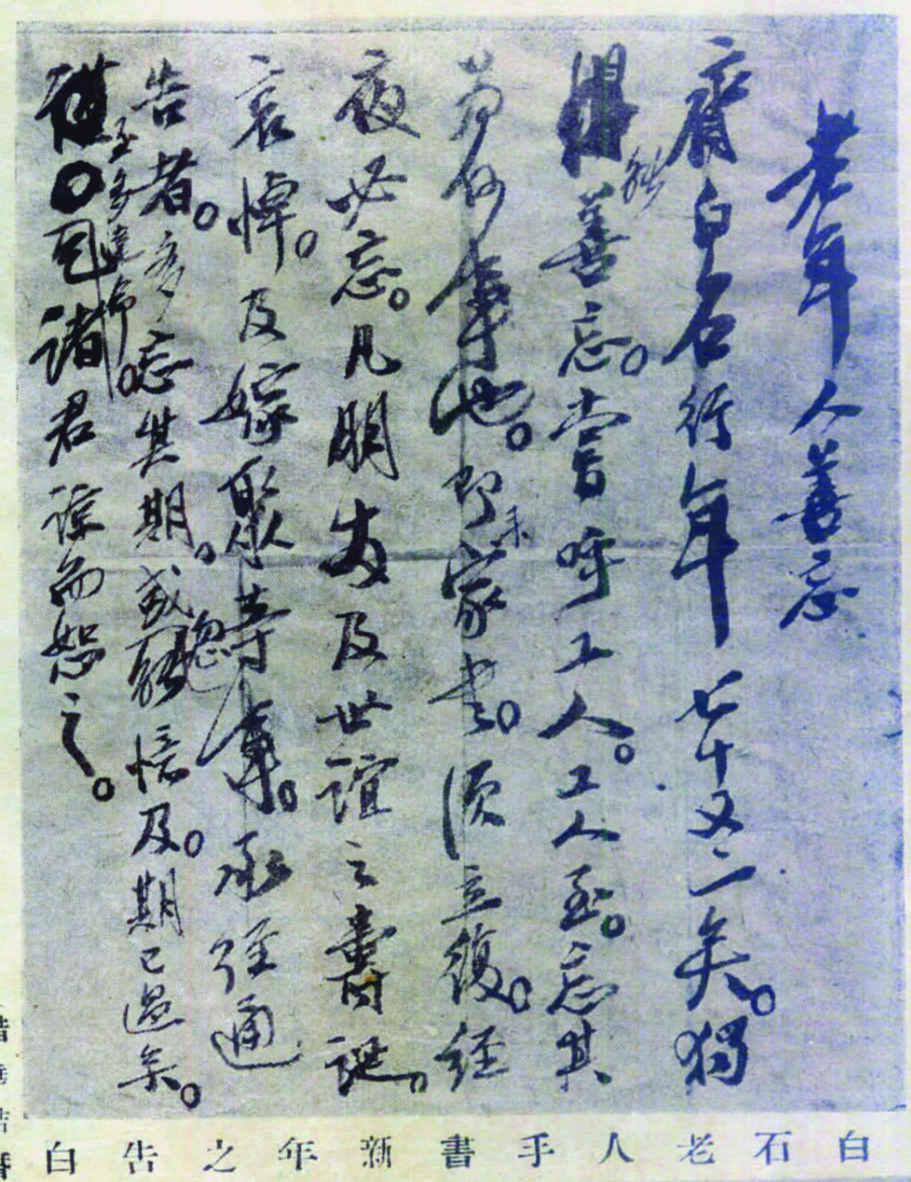 老年人善忘
齊白石行年七十又二矣。獨
能善忘。嘗呼工人。工人至。忘其
為何事也。即來家書。須立復。經
夜必忘。凡朋友及世誼之壽誕。
哀悼。及嫁娶等事。承經通
告者。多忘其期。或忽悟及。期已過矣。
至多違命。
諸君諒而恕之。
白石老人手書新年之告白